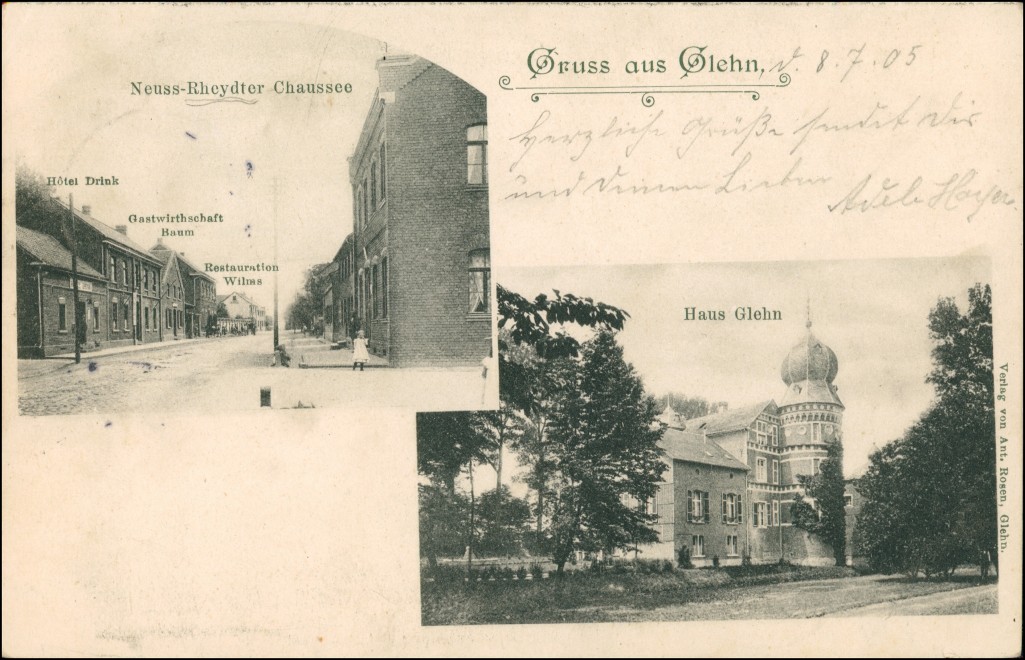 Gruss aus Glehn, d. 8.7.05
Neuss-Rheydter Chaussee
Hôtel Drink
Gastwirthschaft
Baum
Restauration
Wilms
Herzliche Grüße sendet Dir
und Deinen Lieben
Adele
Haus Glehn
Verlag von Ant. Rosen, Glehn.